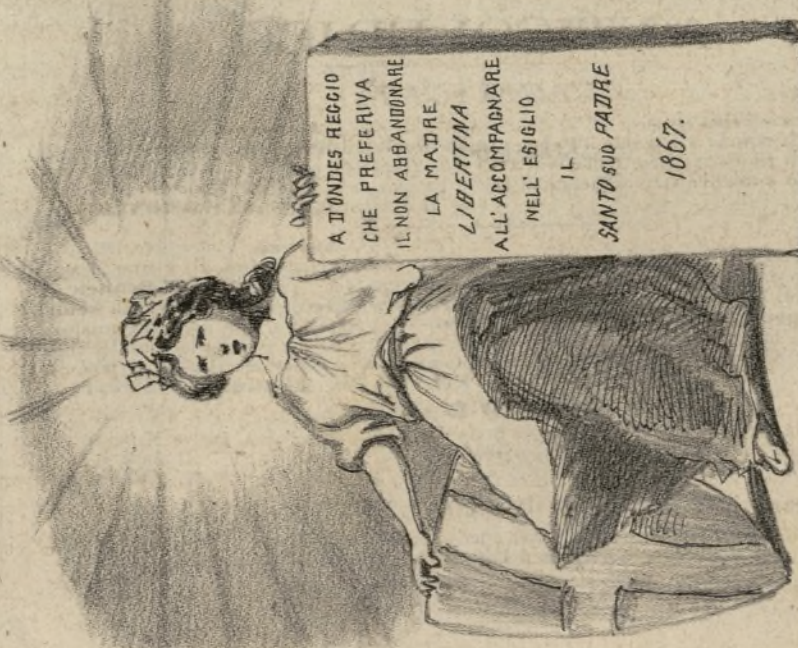 A D'ONDES REGGIO
CHE PREFERIVA
IL NON ABBANDONARE
LA MADRE
LIBERTINA
ALL'ACCOMPAGNARE
NELL' ESIGLIO
IL
SANTO SUO PADRE
1867.